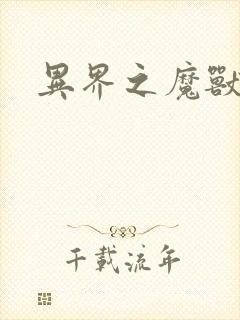 異界之魔獸
千載流年